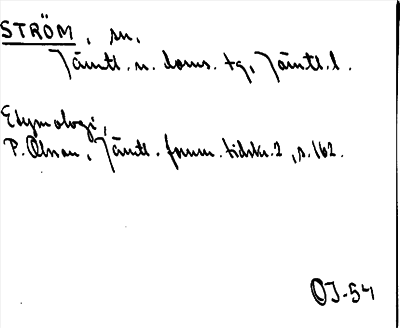 STRÖM, sn.
Jämtl. n. doms. tg, Jämtl. l.
Etymologi,
P. Olsson, Jämtl. fornm. tidskr. 2, s. 162.
OJ-54